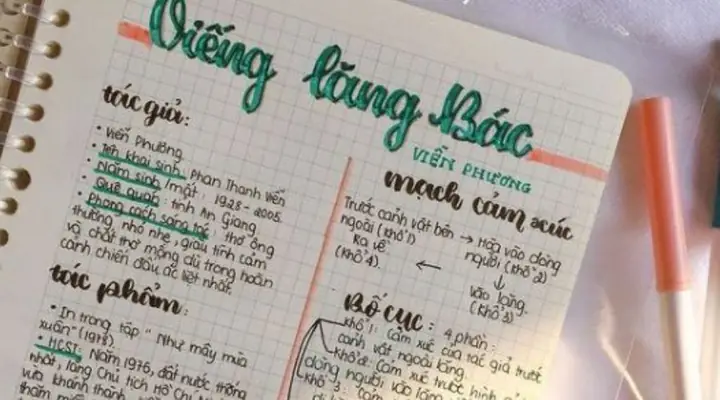 Viếng lăng Bác
VIỄN PHƯƠNG
tác giả:
• Viễn Phương
• Tên khai sinh: Phan Thanh Viễn
• Năm sinh/mất: 1928 - 2005
• Quê quán: tỉnh An Giang
• Phong cách sáng tác: thơ ông
thường nhỏ nhẹ, giàu tình cảm
và chất thơ mộng dù trong hoàn
cảnh chiến đấu ác liệt nhất.
tác phẩm:
• In trong tập " Như mây mùa
xuân" (1978).
• HCST: Năm 1976, đất nước thống
nhất, lăng Chủ tịch Hồ Chí
vừa khánh thành
thăm miền
mạch cảm xúc
Trước cảnh vật bên → Hòa vào dòng
ngoài (khổ 1) người (khổ 2)
↓
Ra về ← vào lăng.
(khổ 4). (khổ 3)
Bố cục: 4 phần:
khổ 1: Cảm xúc của tác giả trước
cảnh vật ngoài lăng.
khổ 2: Cảm xúc trước hình
dòng người vào lăng
khổ 3: Cảm